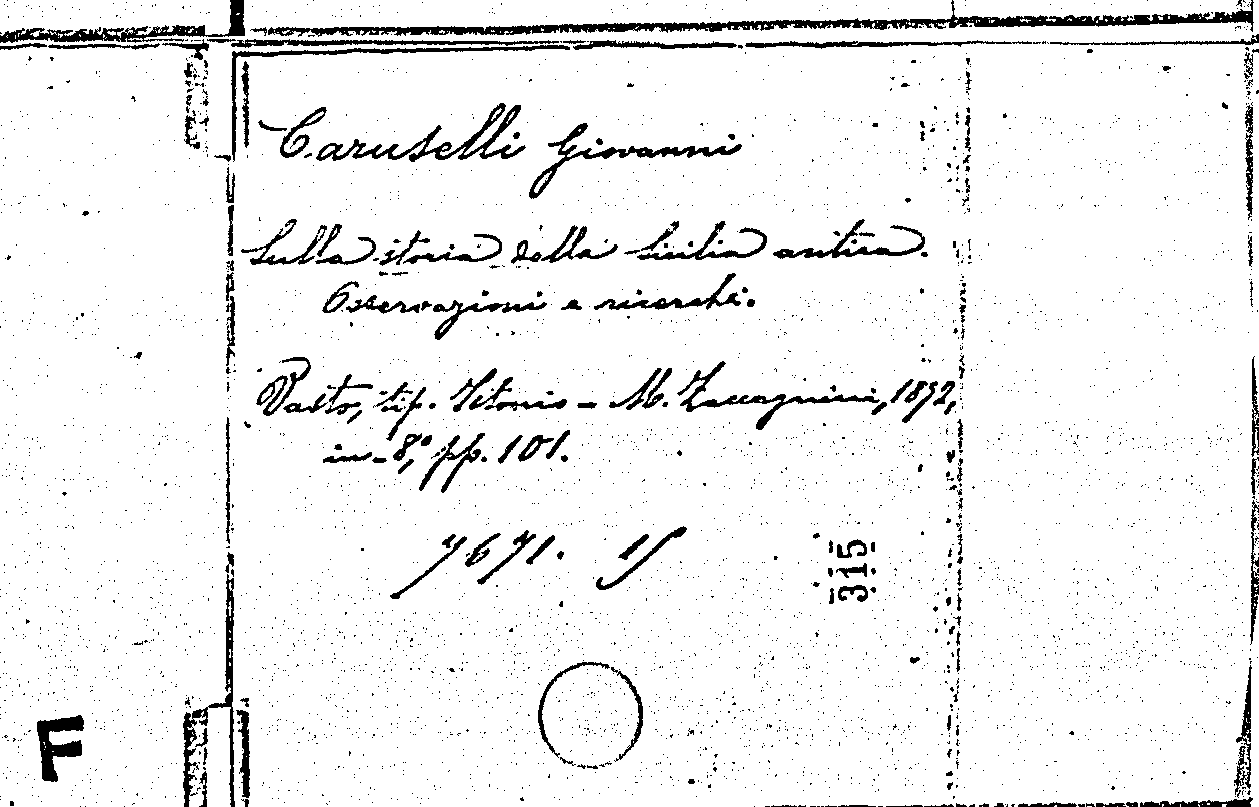 Caruselli Giovanni
Sulla storia della Sicilia antica.
Osservazioni e ricerche.
Vasto, tip. Istonio - M. Zaccagnini, 1892,
in-8°, pp. 101.
7671.
315
F